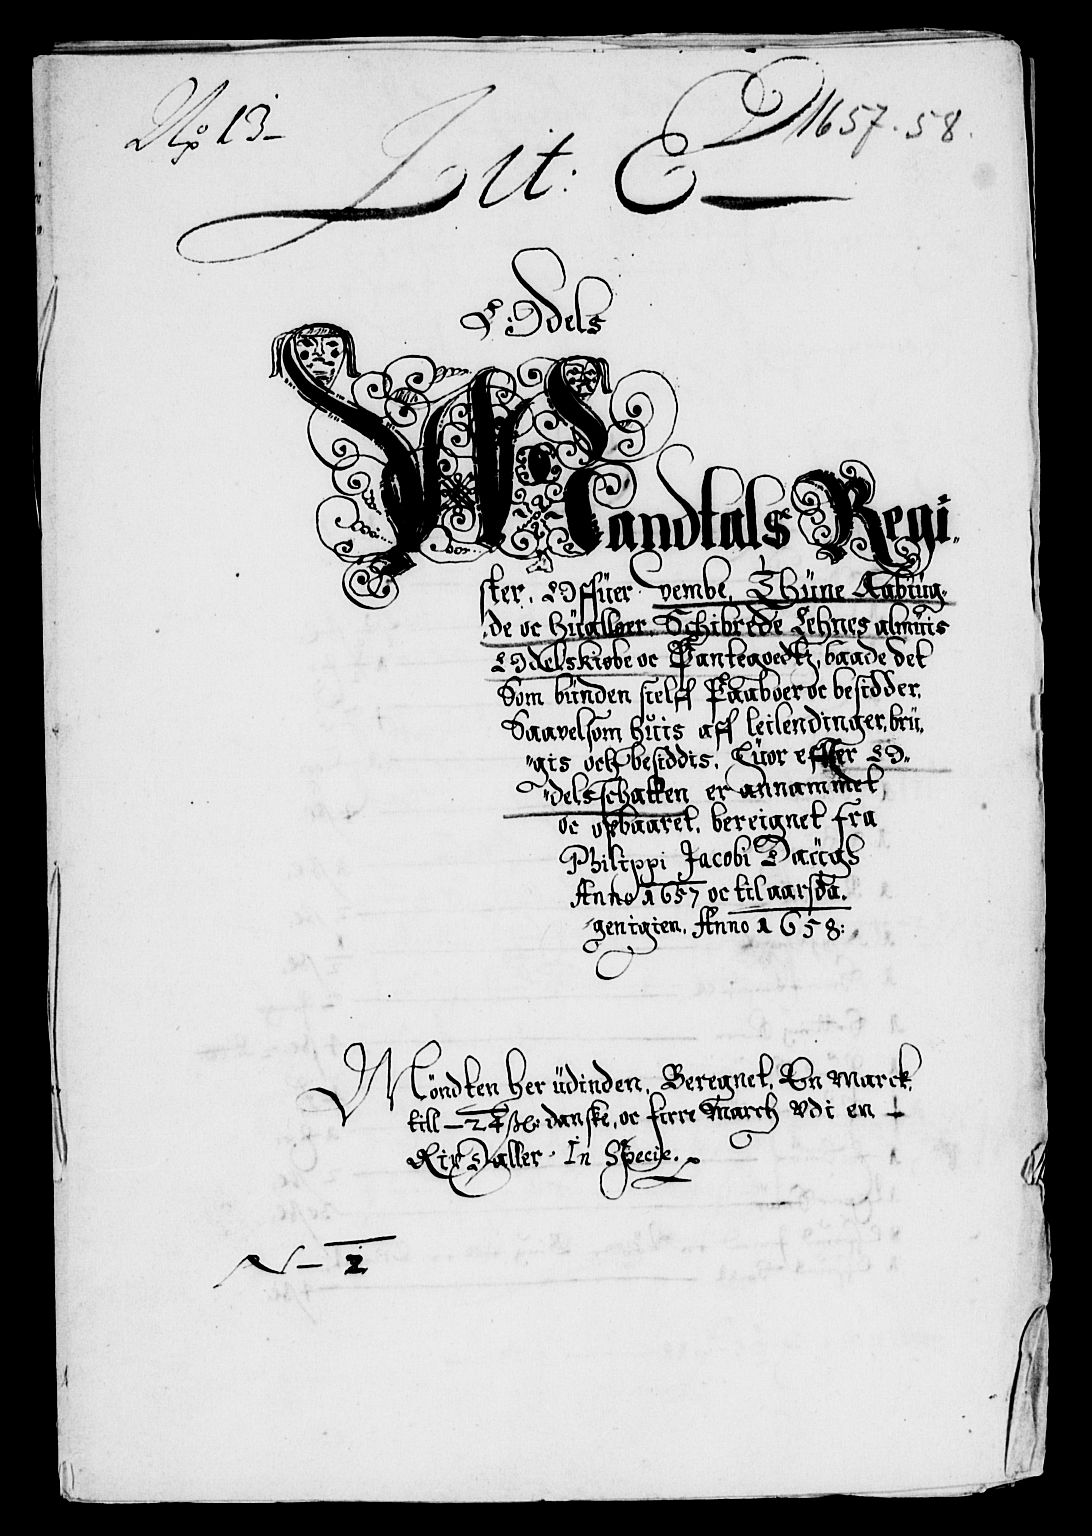 No 13
1657. 58.
Lit: E
E: Odels
Mandtals Regi„
ster, Offüer vembe, Thüne Aabüig„
de oc Hüalløer, Schibrede Lehnes almüis
Odelskiøbe oc Panteg̅oedtz, baade det
Som bünden sielff Paaboer oc besidder,
Saavelsom hüis aff leilendinger, brü„
gis och besiddis, Huor effter O„
delsschatten er annammet,
oc opbaaret, bereignet fra
Philippi Jacobi Daügs
Anno 1657 oc til aarsda„
genigien, Anno 1658:
Möndten her üdinden, Beregnet, En Marck,
till 24 ß danske, oc firre March Vdi en
Rix Daller. In Specie.
N 2